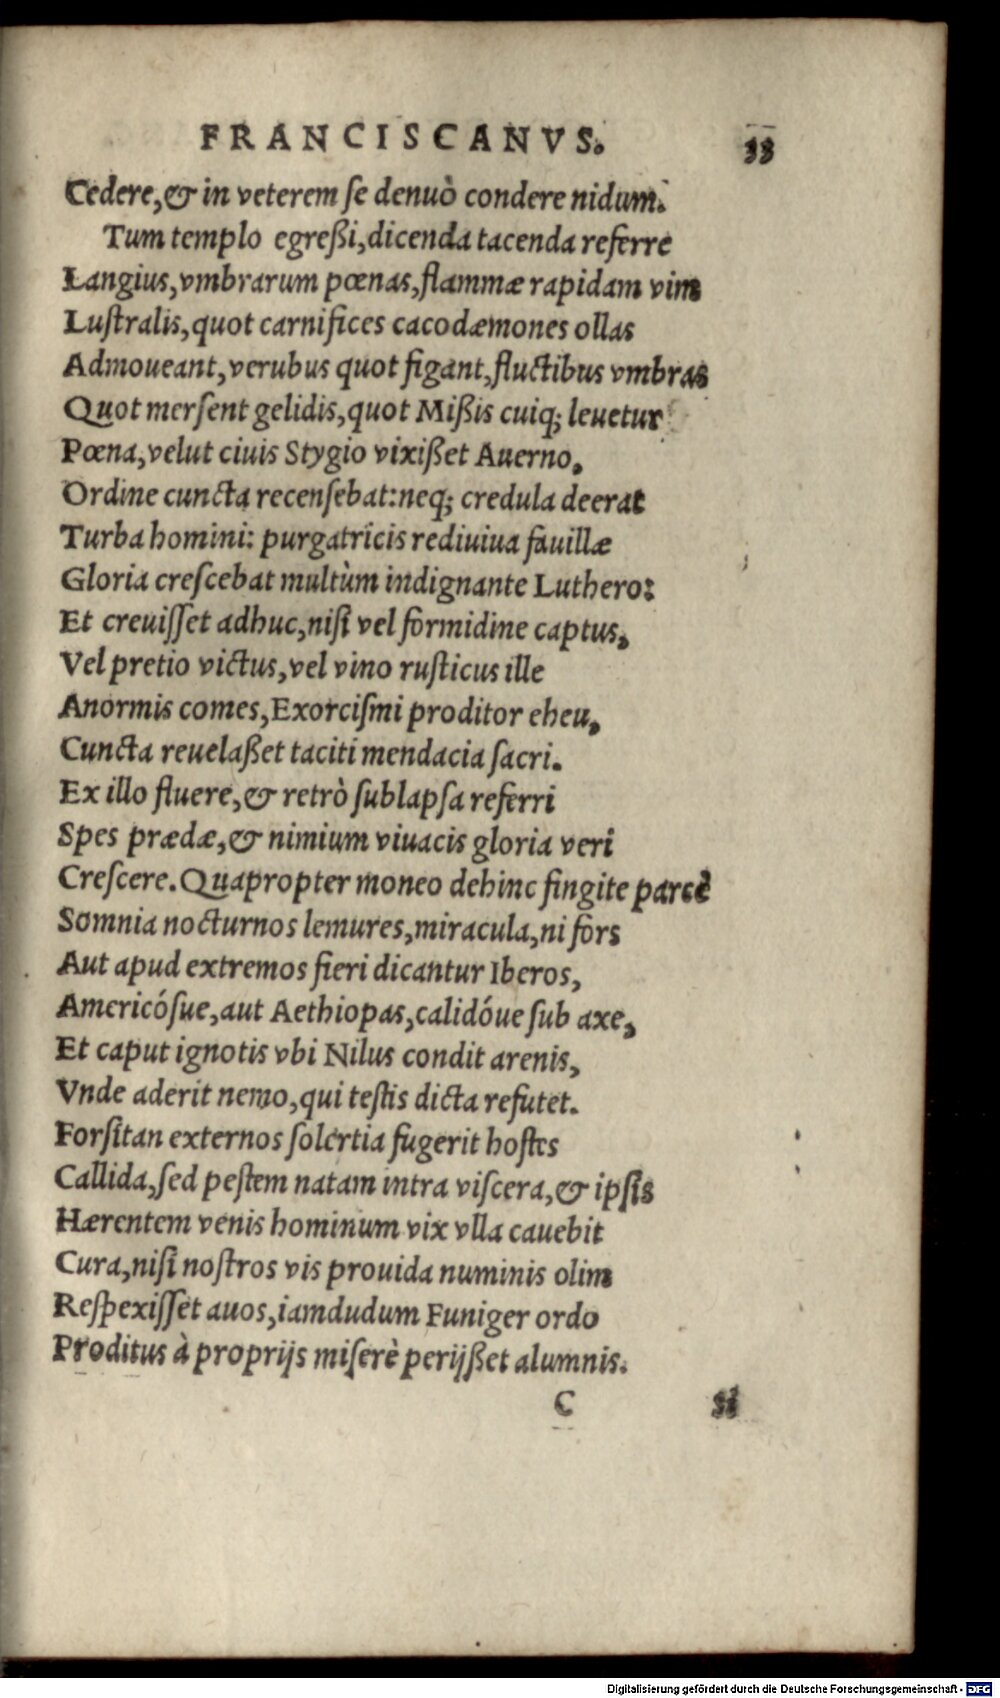 FRANCISCANVS. 33
Cedere,& in veterem ſe denuò condere nidum.
Tum templo egreßi,dicenda tacenda referre
Langius,vmbrarum pœnas,flammæ rapidam vim
Luſtralis,quot carnifices cacodæmones ollas
Admoueant,verubus quot figant,fluctibus vmbras
Quot merſent gelidis,quot Mißis cuiq; leuetur
Pœna,velut ciuis Stygio vixißet Auerno,
Ordine cuncta recenſebat:neq; credula deerat
Turba homini: purgatricis rediuiua fauillæ
Gloria creſcebat multùm indignante Luthero:
Et creuiſſet adhuc,niſi vel formidine captus,
Vel pretio victus,vel vino ruſticus ille
Anormis comes,Exorciſmi proditor eheu,
Cuncta reuelaßet taciti mendacia ſacri.
Ex illo fluere,& retrò ſublapſa referri
Spes prædæ,& nimium viuacis gloria veri
Creſcere.Quapropter moneo dehinc fingite parcè
Somnia nocturnos lemures,miracula,ni fors
Aut apud extremos fieri dicantur Iberos,
Americóſue,aut Aethiopas,calidóue ſub axe,
Et caput ignotis vbi Nilus condit arenis,
Vnde aderit nemo,qui teſtis dicta refutet.
Forſitan externos ſolertia fugerit hoſtes
Callida,ſed peſtem natam intra viſcera,& ipſis
Hærentem venis hominum vix vlla cauebit
Cura,niſi noſtros vis prouida numinis olim
Reſpexiſſet auos,iamdudum Funiger ordo
Proditus à proprijs miſerè perijßet alumnis.
C Si
Digitalisierung gefördert durch die Deutsche Forschungsgemeinschaft - DFG